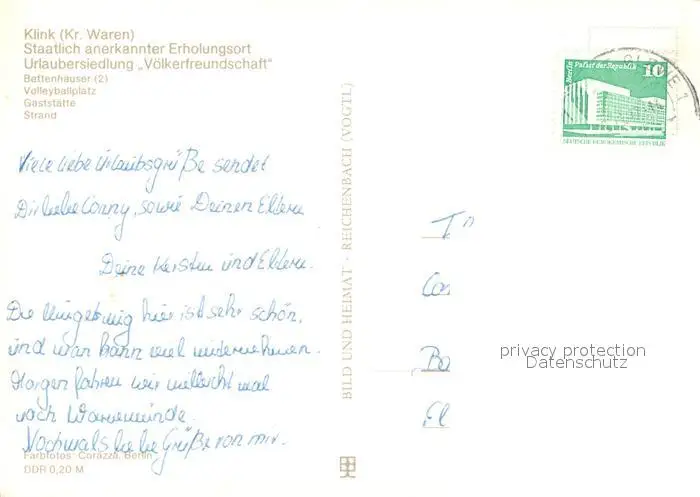 Klink (Kr. Waren)
Staatlich anerkannter Erholungsort
Urlaubersiedlung „Völkerfreundschaft“
Bettenhäuser (2)
Volleyballplatz
Gaststätte
Strand
Viele liebe Urlaubsgrüße sendet
Dir liebe Conny, sowie Deinen Eltern
Deine Kerstin und Eltern.
Die Umgebung hier ist sehr schön,
und man kann viel unternehmen.
Morgen fahren wir vielleicht mal
nach Warnemünde.
Nochmals liebe Grüße von mir.
Farbfotos: Corazza, Berlin
DDR 0,20 M
BILD UND HEIMAT · REICHENBACH (VOGTL)
Berlin Palast der Republik 10
DEUTSCHE DEMOKRATISCHE REPUBLIK
Co
Ba
privacy protection
Datenschutz